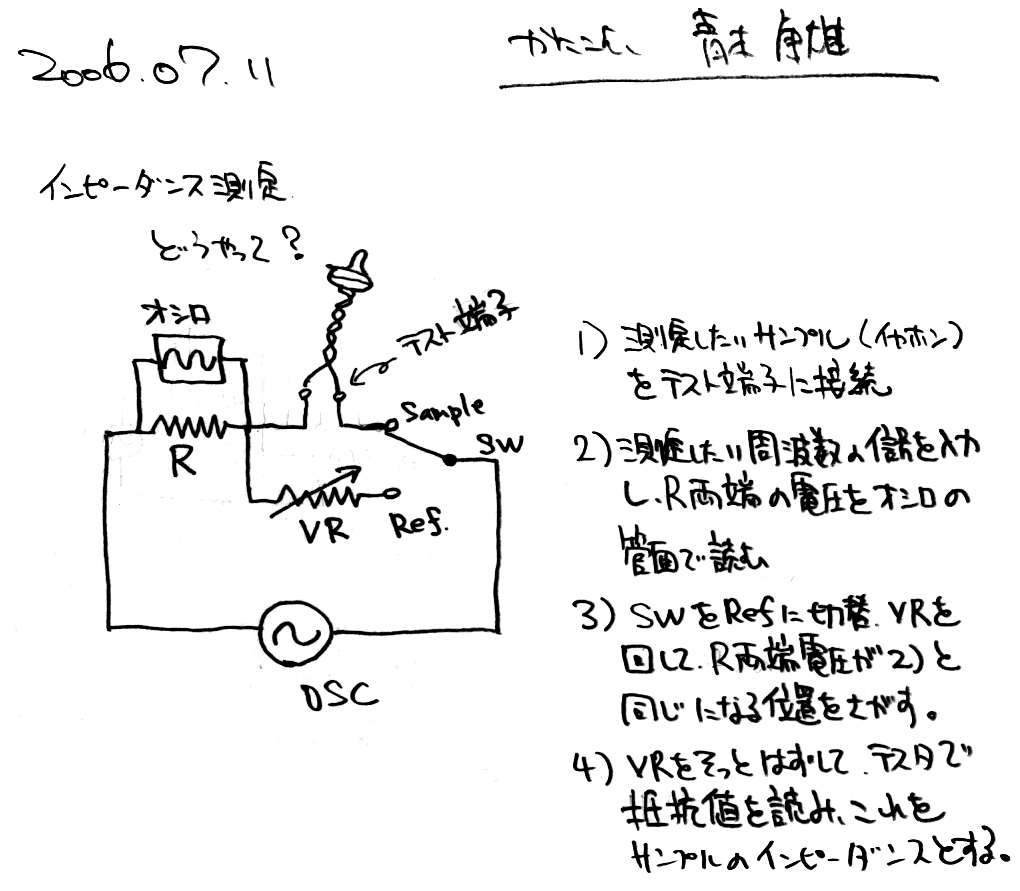 2006.07.11
かたこん、 青木 康雄
インピーダンス測定
どうやって?
オシロ
テスト端子
Sample
SW
R
VR
Ref.
OSC
1) 測定したいサンプル(イヤホン)
をテスト端子に接続
2) 測定したい周波数の信号を入力
し、R両端の電圧をオシロの
管面で読む
3) SWをRefに切替、VRを
回して、R両端電圧が2)と
同じになる位置をさがす。
4) VRをそっとはずして、テスタで
抵抗値を読み、これを
サンプルのインピーダンスとする。